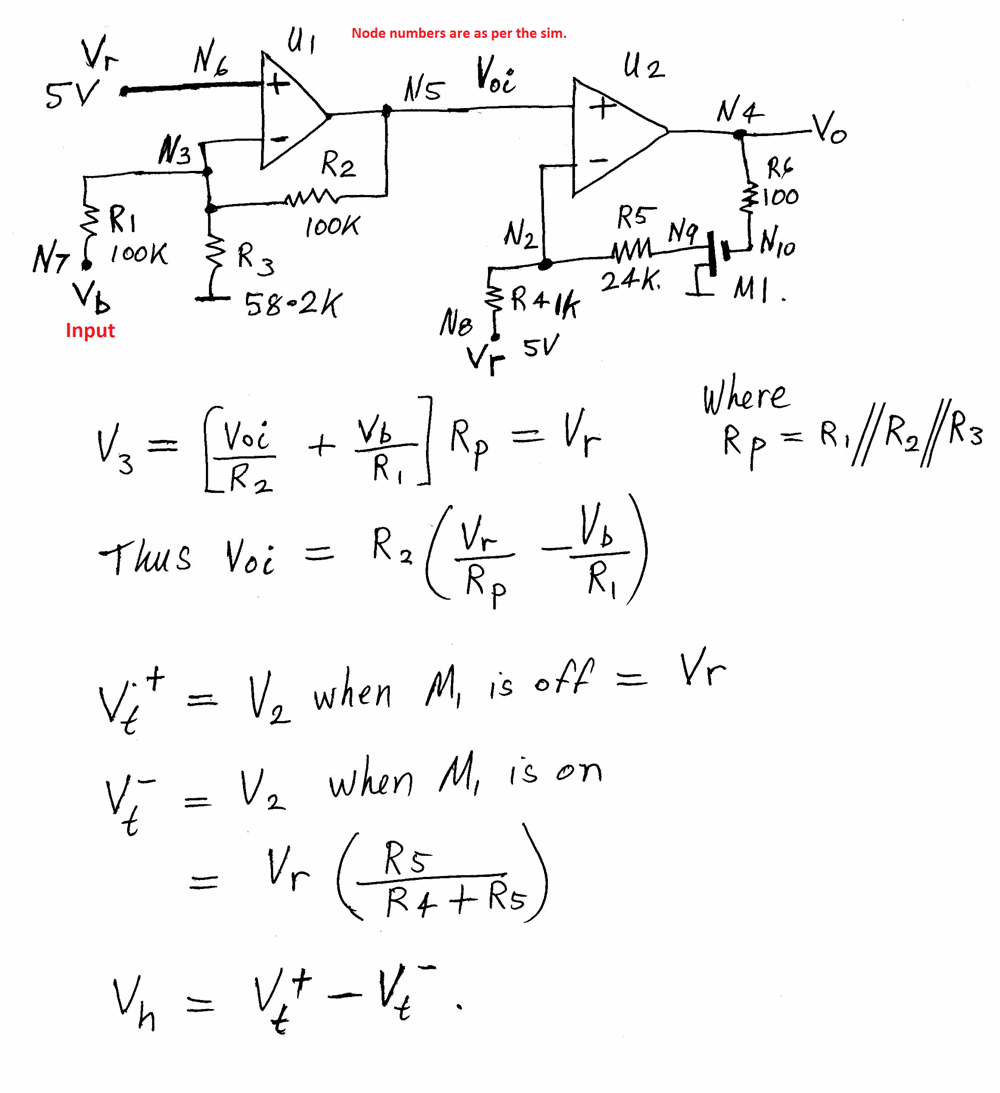 Node numbers are as per the sim.
Vr
5V
N6
U1
+
-
N5
Voi
U2
+
-
N4
Vo
N3
R2
100K
R1
100K
N7
Vb
Input
R3
58.2K
R6
100
N2
R5
24K.
N9
N10
M1.
R4 1K
N8
Vr 5V
V3 = [Voi/R2 + Vb/R1] Rp = Vr
Where
Rp = R1//R2//R3
Thus Voi = R2 (Vr/Rp - Vb/R1)
Vt+ = V2 when M1 is off = Vr
Vt- = V2 when M1 is on
= Vr (R5/R4+R5)
Vh = Vt+ - Vt-.